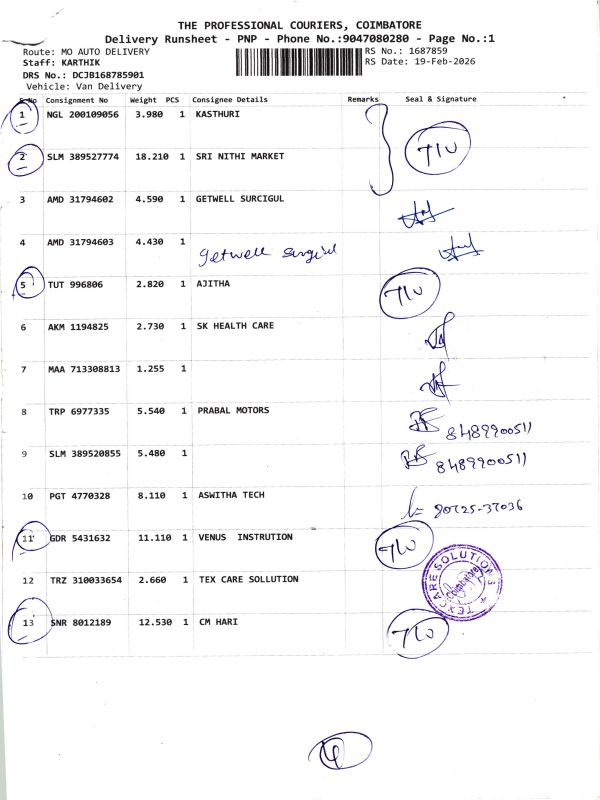 THE PROFESSIONAL COURIERS, COIMBATORE
Delivery Runsheet - PNP - Phone No.:9047080280 - Page No.:1
Route: MO AUTO DELIVERY RS No.: 1687859
Staff: KARTHIK RS Date: 19-Feb-2026
DRS No.: DCJB168785901
Vehicle: Van Delivery
S.No Consignment No Weight PCS Consignee Details Remarks Seal & Signature
1 NGL 200109056 3.980 1 KASTHURI
2 SLM 389527774 18.210 1 SRI NITHI MARKET
3 AMD 31794602 4.590 1 GETWELL SURCIGUL
4 AMD 31794603 4.430 1 Getwell surgical
5 TUT 996806 2.820 1 AJITHA
6 AKM 1194825 2.730 1 SK HEALTH CARE
7 MAA 713308813 1.255 1
8 TRP 6977335 5.540 1 PRABAL MOTORS 8489900511
9 SLM 389520855 5.480 1 8489900511
10 PGT 4770328 8.110 1 ASWITHA TECH 90725-37036
11 GDR 5431632 11.110 1 VENUS INSTRUTION
12 TRZ 310033654 2.660 1 TEX CARE SOLLUTION TEXCARE SOLUTIONS
13 SNR 8012189 12.530 1 CM HARI